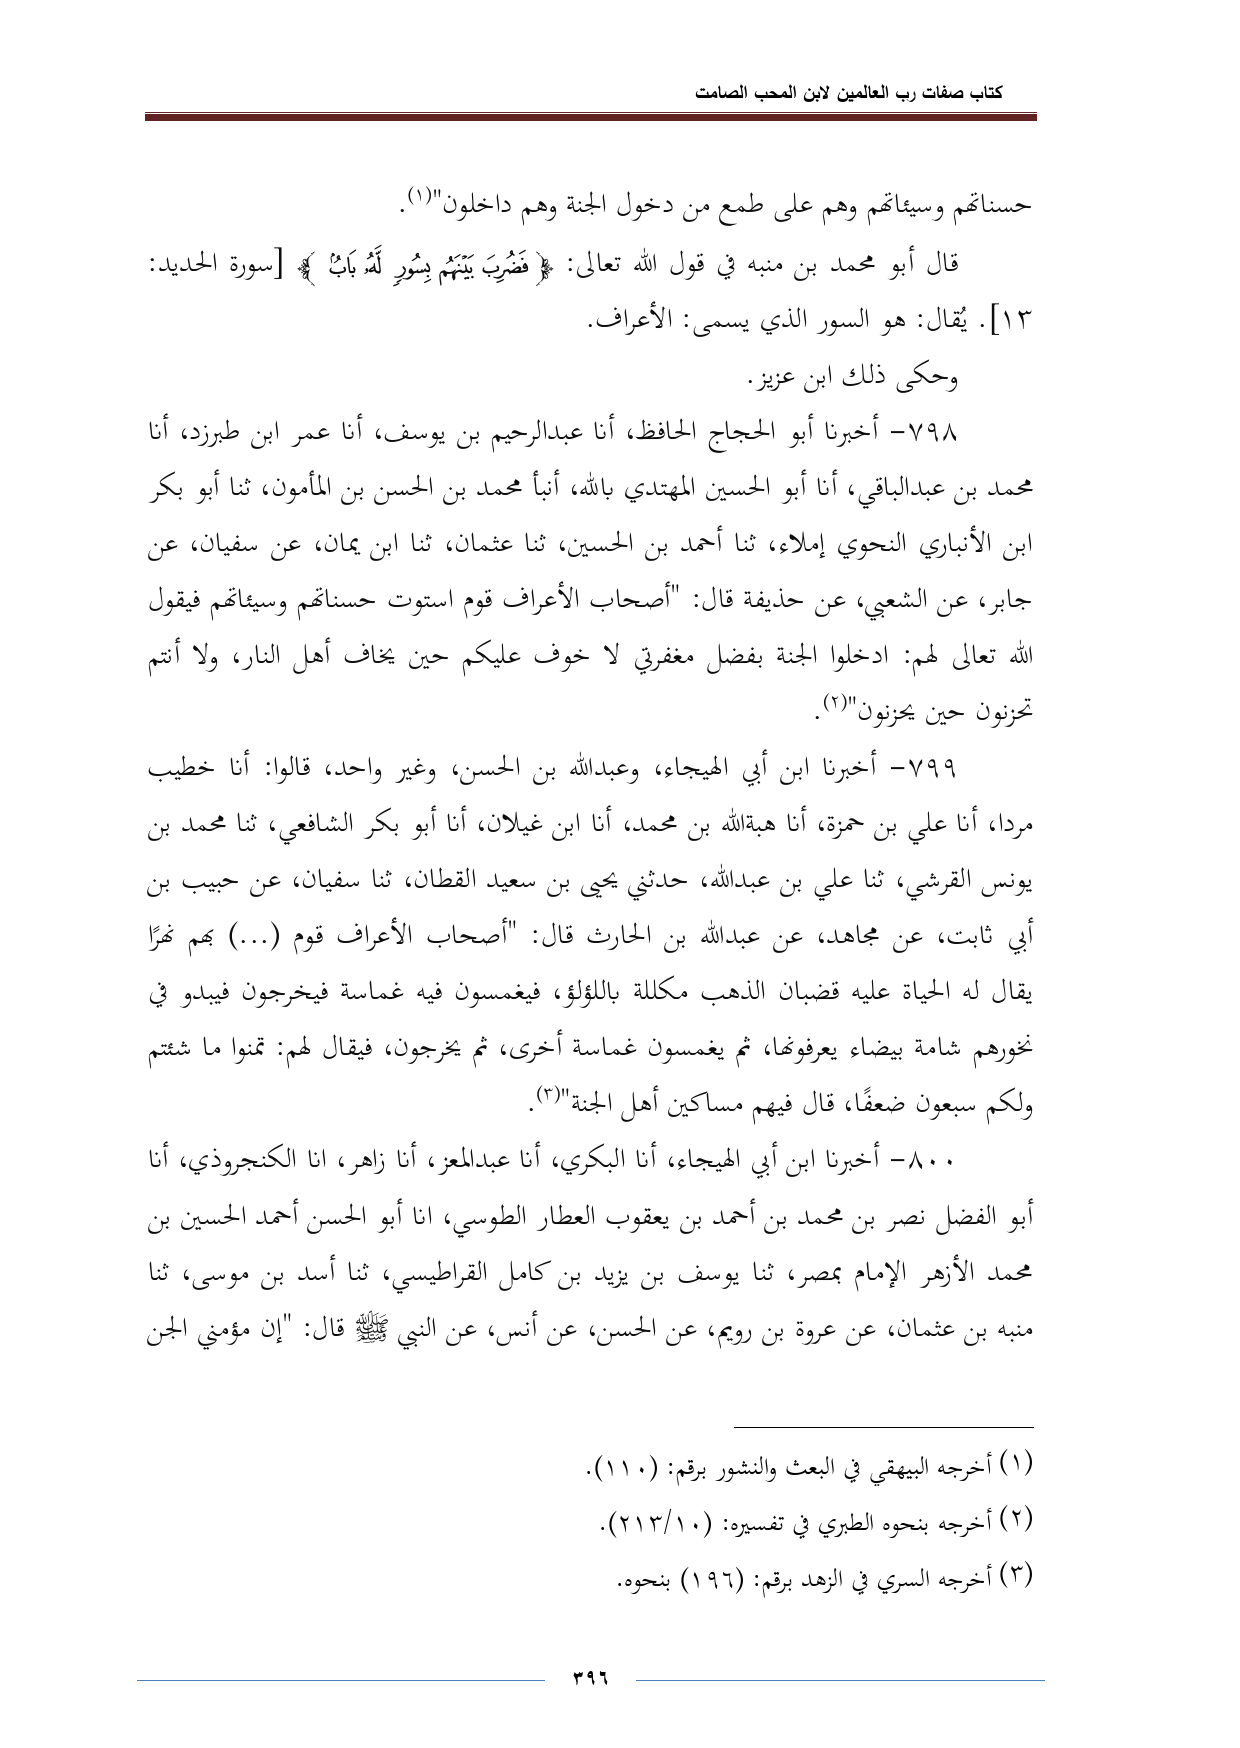 كتاب صفات رب العالمين لابن المحب الصامت
حسناتهم وسيئاتهم وهم على طمع من دخول الجنة وهم داخلون"(١).
قال أبو محمد بن منبه في قول الله تعالى: ﴿ فَضُرِبَ بَيْنَهُم بِسُورٍ لَّهُۥ بَابٌ ﴾ [سورة الحديد:
١٣]. يُقال: هو السور الذي يسمى: الأعراف.
وحكى ذلك ابن عزيز.
٧٩٨- أخبرنا أبو الحجاج الحافظ، أنا عبدالرحيم بن يوسف، أنا عمر ابن طبرزد، أنا
محمد بن عبدالباقي، أنا أبو الحسين المهتدي بالله، أنبأ محمد بن الحسن بن المأمون، ثنا أبو بكر
ابن الأنباري النحوي إملاء، ثنا أحمد بن الحسين، ثنا عثمان، ثنا ابن يمان، عن سفيان، عن
جابر، عن الشعبي، عن حذيفة قال: "أصحاب الأعراف قوم استوت حسناتهم وسيئاتهم فيقول
الله تعالى لهم: ادخلوا الجنة بفضل مغفرتي لا خوف عليكم حين يخاف أهل النار، ولا أنتم
تحزنون حين يحزنون"(٢).
٧٩٩- أخبرنا ابن أبي الهيجاء، وعبدالله بن الحسن، وغير واحد، قالوا: أنا خطيب
مردا، أنا علي بن حمزة، أنا هبةالله بن محمد، أنا ابن غيلان، أنا أبو بكر الشافعي، ثنا محمد بن
يونس القرشي، ثنا علي بن عبدالله، حدثني يحيى بن سعيد القطان، ثنا سفيان، عن حبيب بن
أبي ثابت، عن مجاهد، عن عبدالله بن الحارث قال: "أصحاب الأعراف قوم (...) بهم نهرًا
يقال له الحياة عليه قضبان الذهب مكللة باللؤلؤ، فيغمسون فيه غماسة فيخرجون فيبدو في
نحورهم شامة بيضاء يعرفونها، ثم يغمسون غماسة أخرى، ثم يخرجون، فيقال لهم: تمنوا ما شئتم
ولكم سبعون ضعفًا، قال فيهم مساكين أهل الجنة"(٣).
٨٠٠- أخبرنا ابن أبي الهيجاء، أنا البكري، أنا عبدالمعز، أنا زاهر، انا الكنجروذي، أنا
أبو الفضل نصر بن محمد بن أحمد بن يعقوب العطار الطوسي، انا أبو الحسن أحمد الحسين بن
محمد الأزهر الإمام بمصر، ثنا يوسف بن يزيد بن كامل القراطيسي، ثنا أسد بن موسى، ثنا
منبه بن عثمان، عن عروة بن رويم، عن الحسن، عن أنس، عن النبي ﷺ قال: "إن مؤمني الجن
(١) أخرجه البيهقي في البعث والنشور برقم: (١١٠).
(٢) أخرجه بنحوه الطبري في تفسيره: (٢١٣/١٠).
(٣) أخرجه السري في الزهد برقم: (١٩٦) بنحوه.
٣٩٦